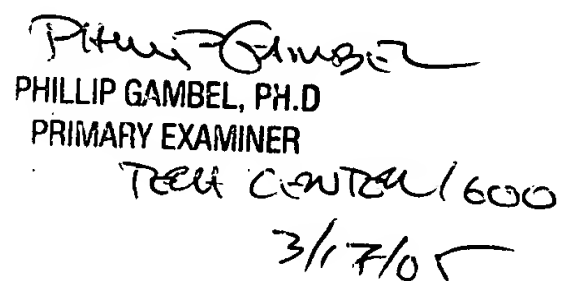 Phillip Gambel
PHILLIP GAMBEL, PH.D
PRIMARY EXAMINER
TECH CENTER 1600
3/17/05